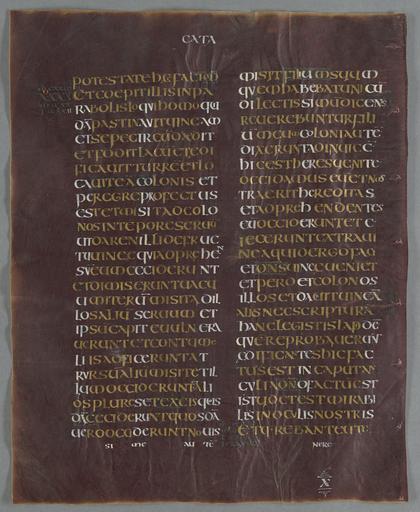 CATA
POTESTATE HEC FACIAM
ET COEPIT ILLIS IN PA
RABOLIS LOQUI HOMO QUI
DAM PASTINAUIT UINEAM
ET SEPE CIRCUMDEDIT
ET FODIT LACUM ET EDI
FICAUIT TURRE ET LO
CAUIT EA COLONIS ET
PEREGRE PROFECTUS
EST ET MISIT AD COLO
NOS IN TEMPORE SERUU
UT DARENT ILLI DE FRUC
TU UINEE QUI ADPREHEN
SUM EUM CECIDERUNT
ET DIMISERUNT UACUU
ET ITERUM MISIT AD IL
LOS ALIU SERUUM ET
IPSU CAPITE UULNERA
UERUNT ET CONTUME
LIIS AFFECERUNT AT
RURSU ALIUM MISIT ET IL
LUM OCCIDERUNT ALI
OS PLURES ET EX QUIS
DAM CECIDERUNT QUOSDA
UERO OCCIDERUNT NOUIS
SI ME AUTE
MISIT FILIUM SUUM
QUEM HABEBAT UNICU
DILECTISSIMU DICENS
REUEREBUNTUR FILI
UM MEUM COLONI AUTE
DIXERUNT AD INUICE
HIC EST HERES UENITE
OCCIDAMUS EUM ET NOS
TRA ERIT HEREDITAS
ET ADPREHENDENTES
EU OCCIDERUNT ET E
IECERUNT EXTRA UI
NEA QUID ERGO FACI
ET DNS UINEE UENIET
ET PERDET COLONOS
ILLOS ET DABIT UINEA
ALIIS NEC SCRIPTURA
HANC LEGISTIS LAPIDE
QUE REPROBAUERUNT
EDIFICANTES HIC FAC
TUS EST IN CAPUT AN
GULI A DNO FACTU EST
ISTUD ET EST MIRABI
LIS IN OCULIS NOSTRIS
ET QUEREBANT EUM TE
NERE
X